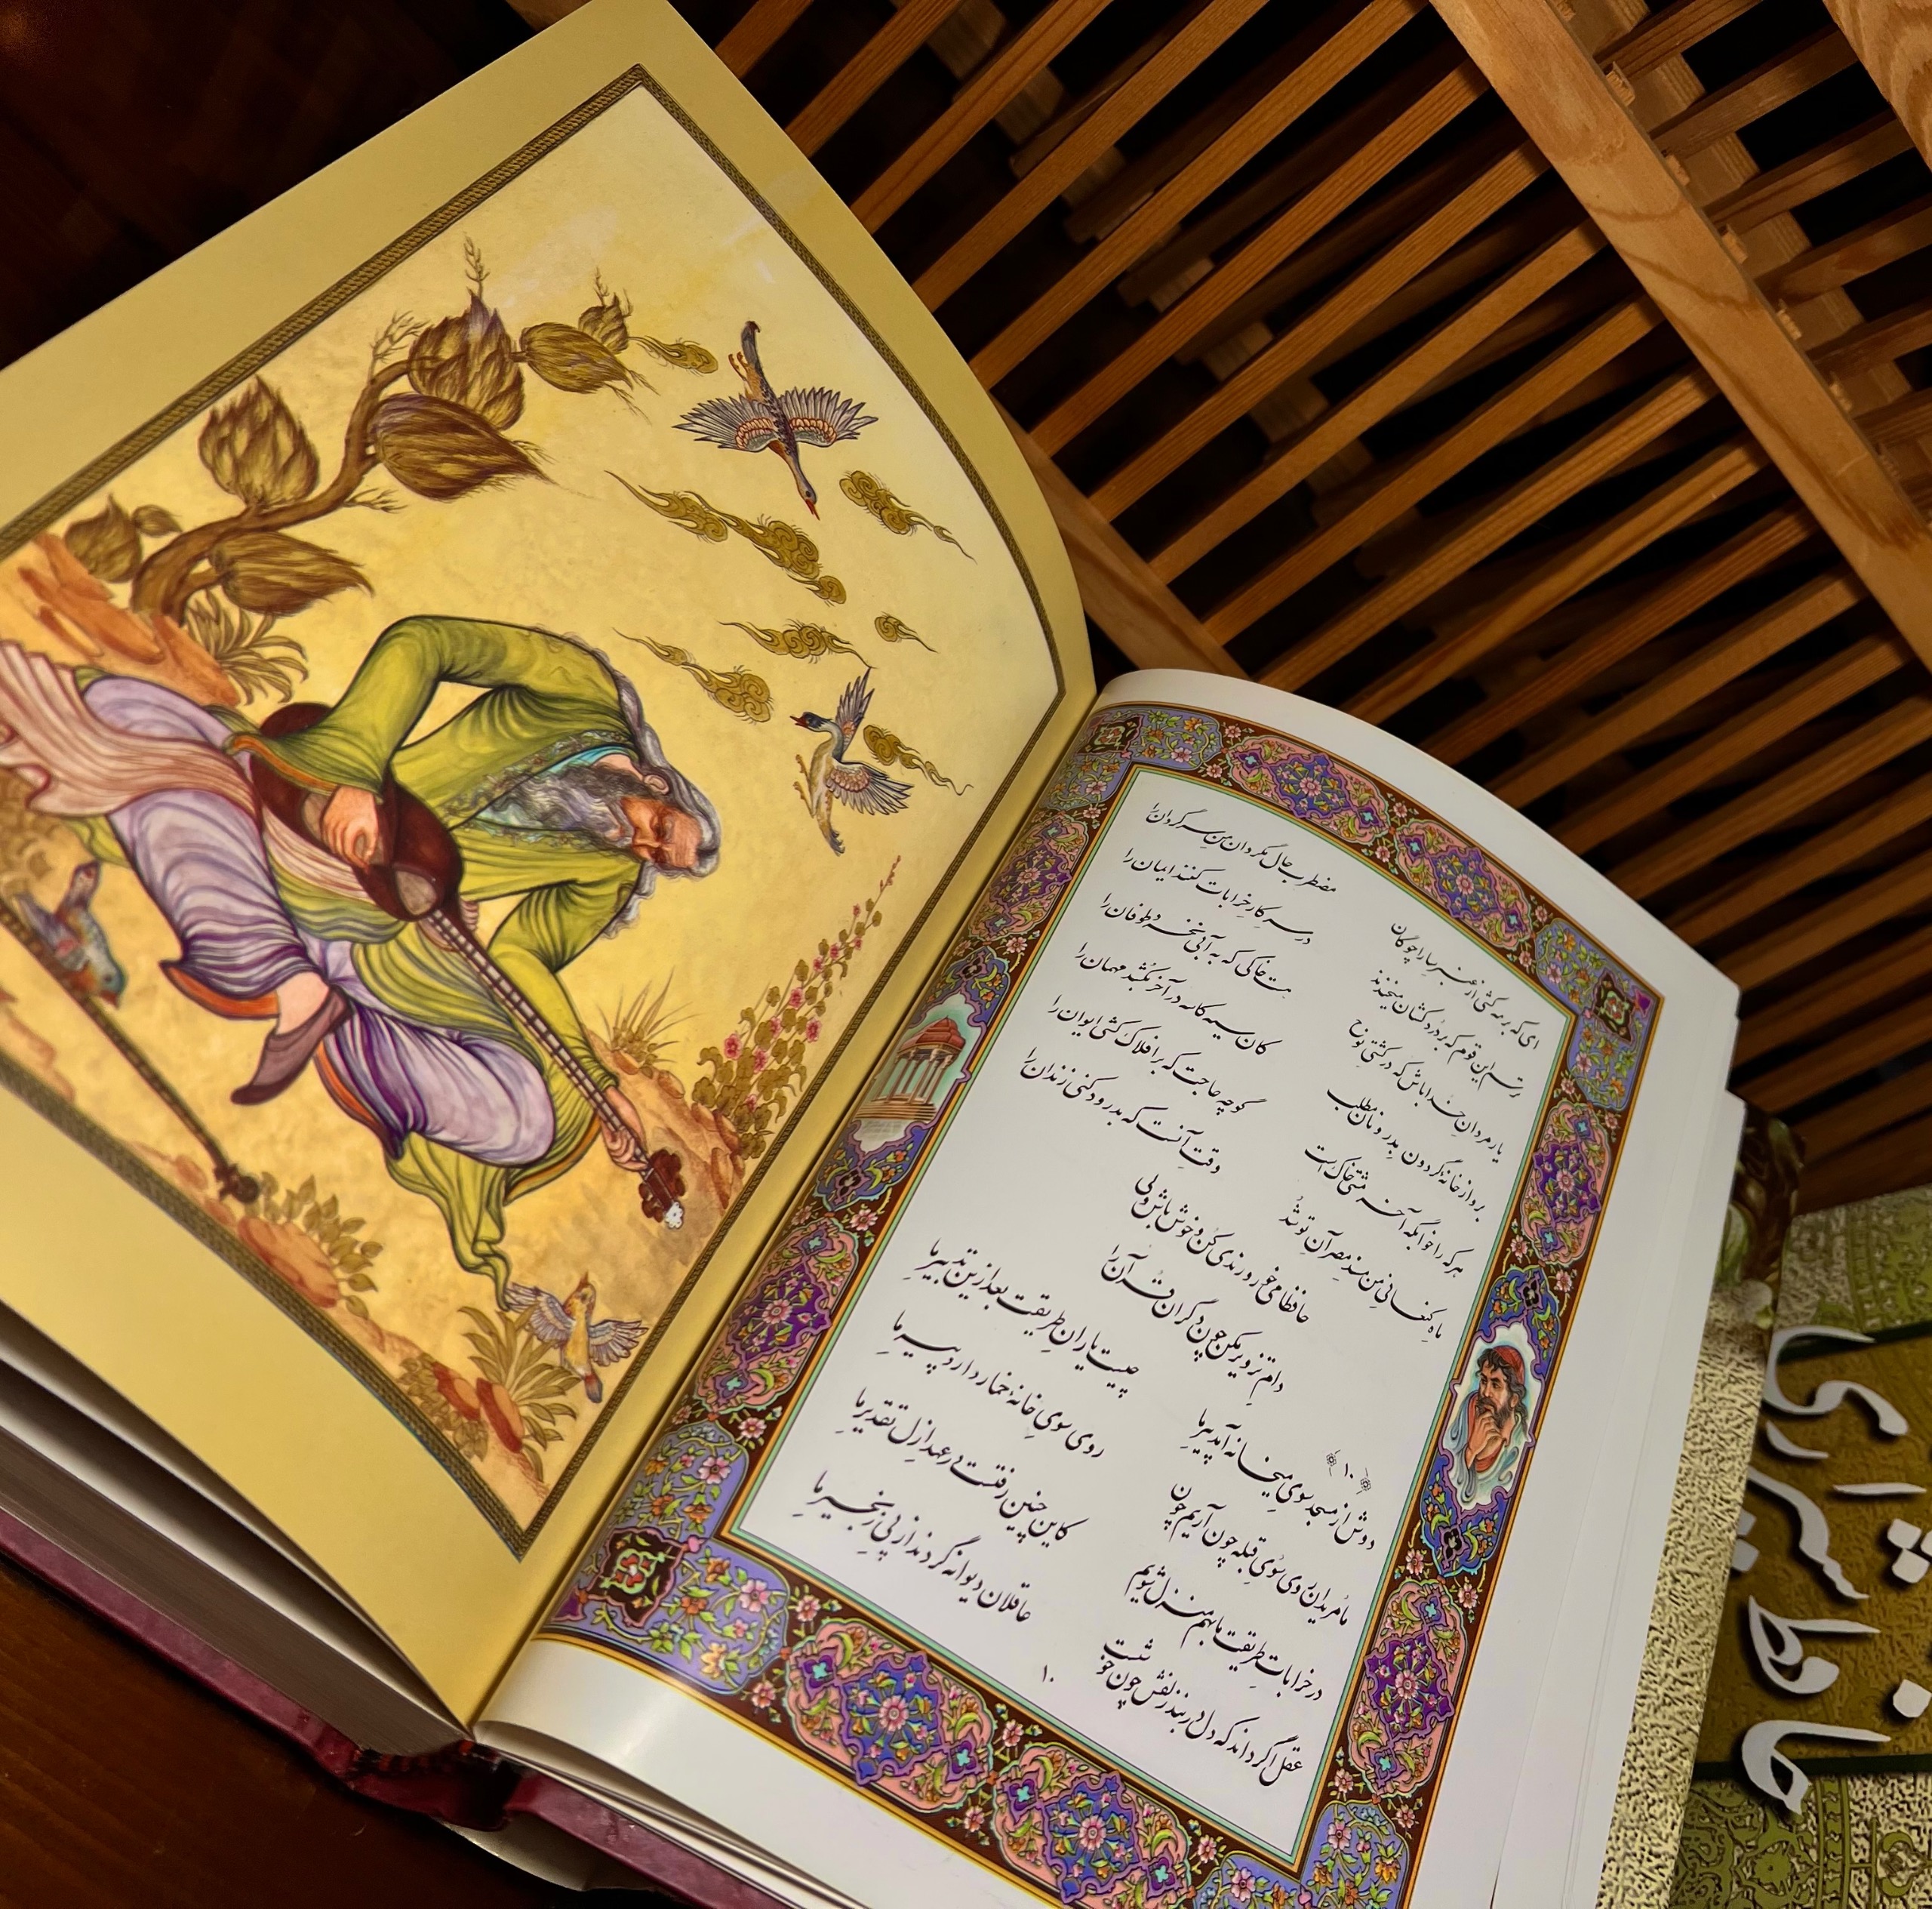 ای که بر مه کشی از عنبر سارا چوگان مضطرب حال مگردان من سرگردان را
ترسم این قوم که بر دردکشان میخندند در سر کار خرابات کنند ایمان را
یار مردان خدا باش که در کشتی نوح هست خاکی که به آبی نخرد طوفان را
برو از خانهٔ گردون بدر و نان مطلب کان سیه کاسه در آخر بکشد مهمان را
هر که را خوابگه آخر مشتی خاک است گو چه حاجت که بر افلاک کشی ایوان را
ماه کنعانی من مسند مصر آن تو شد وقت آنست که بدرود کنی زندان را
حافظا می خور و رندی کن و خوش باش ولی
دام تزویر مکن چون دگران قرآن را
۱۰
دوش از مسجد سوی میخانه آمد پیر ما چیست یاران طریقت بعد ازین تدبیر ما
ما مریدان روی سوی قبله چون آریم چون روی سوی خانهٔ خمار دارد پیر ما
در خرابات طریقت ما بهم منزل شویم کاین چنین رفتست در عهد ازل تقدیر ما
عقل اگر داند که دل در بند زلفش چون خوشست عاقلان دیوانه گردند از پی زنجیر ما
۱۰
حافظ شیرازی